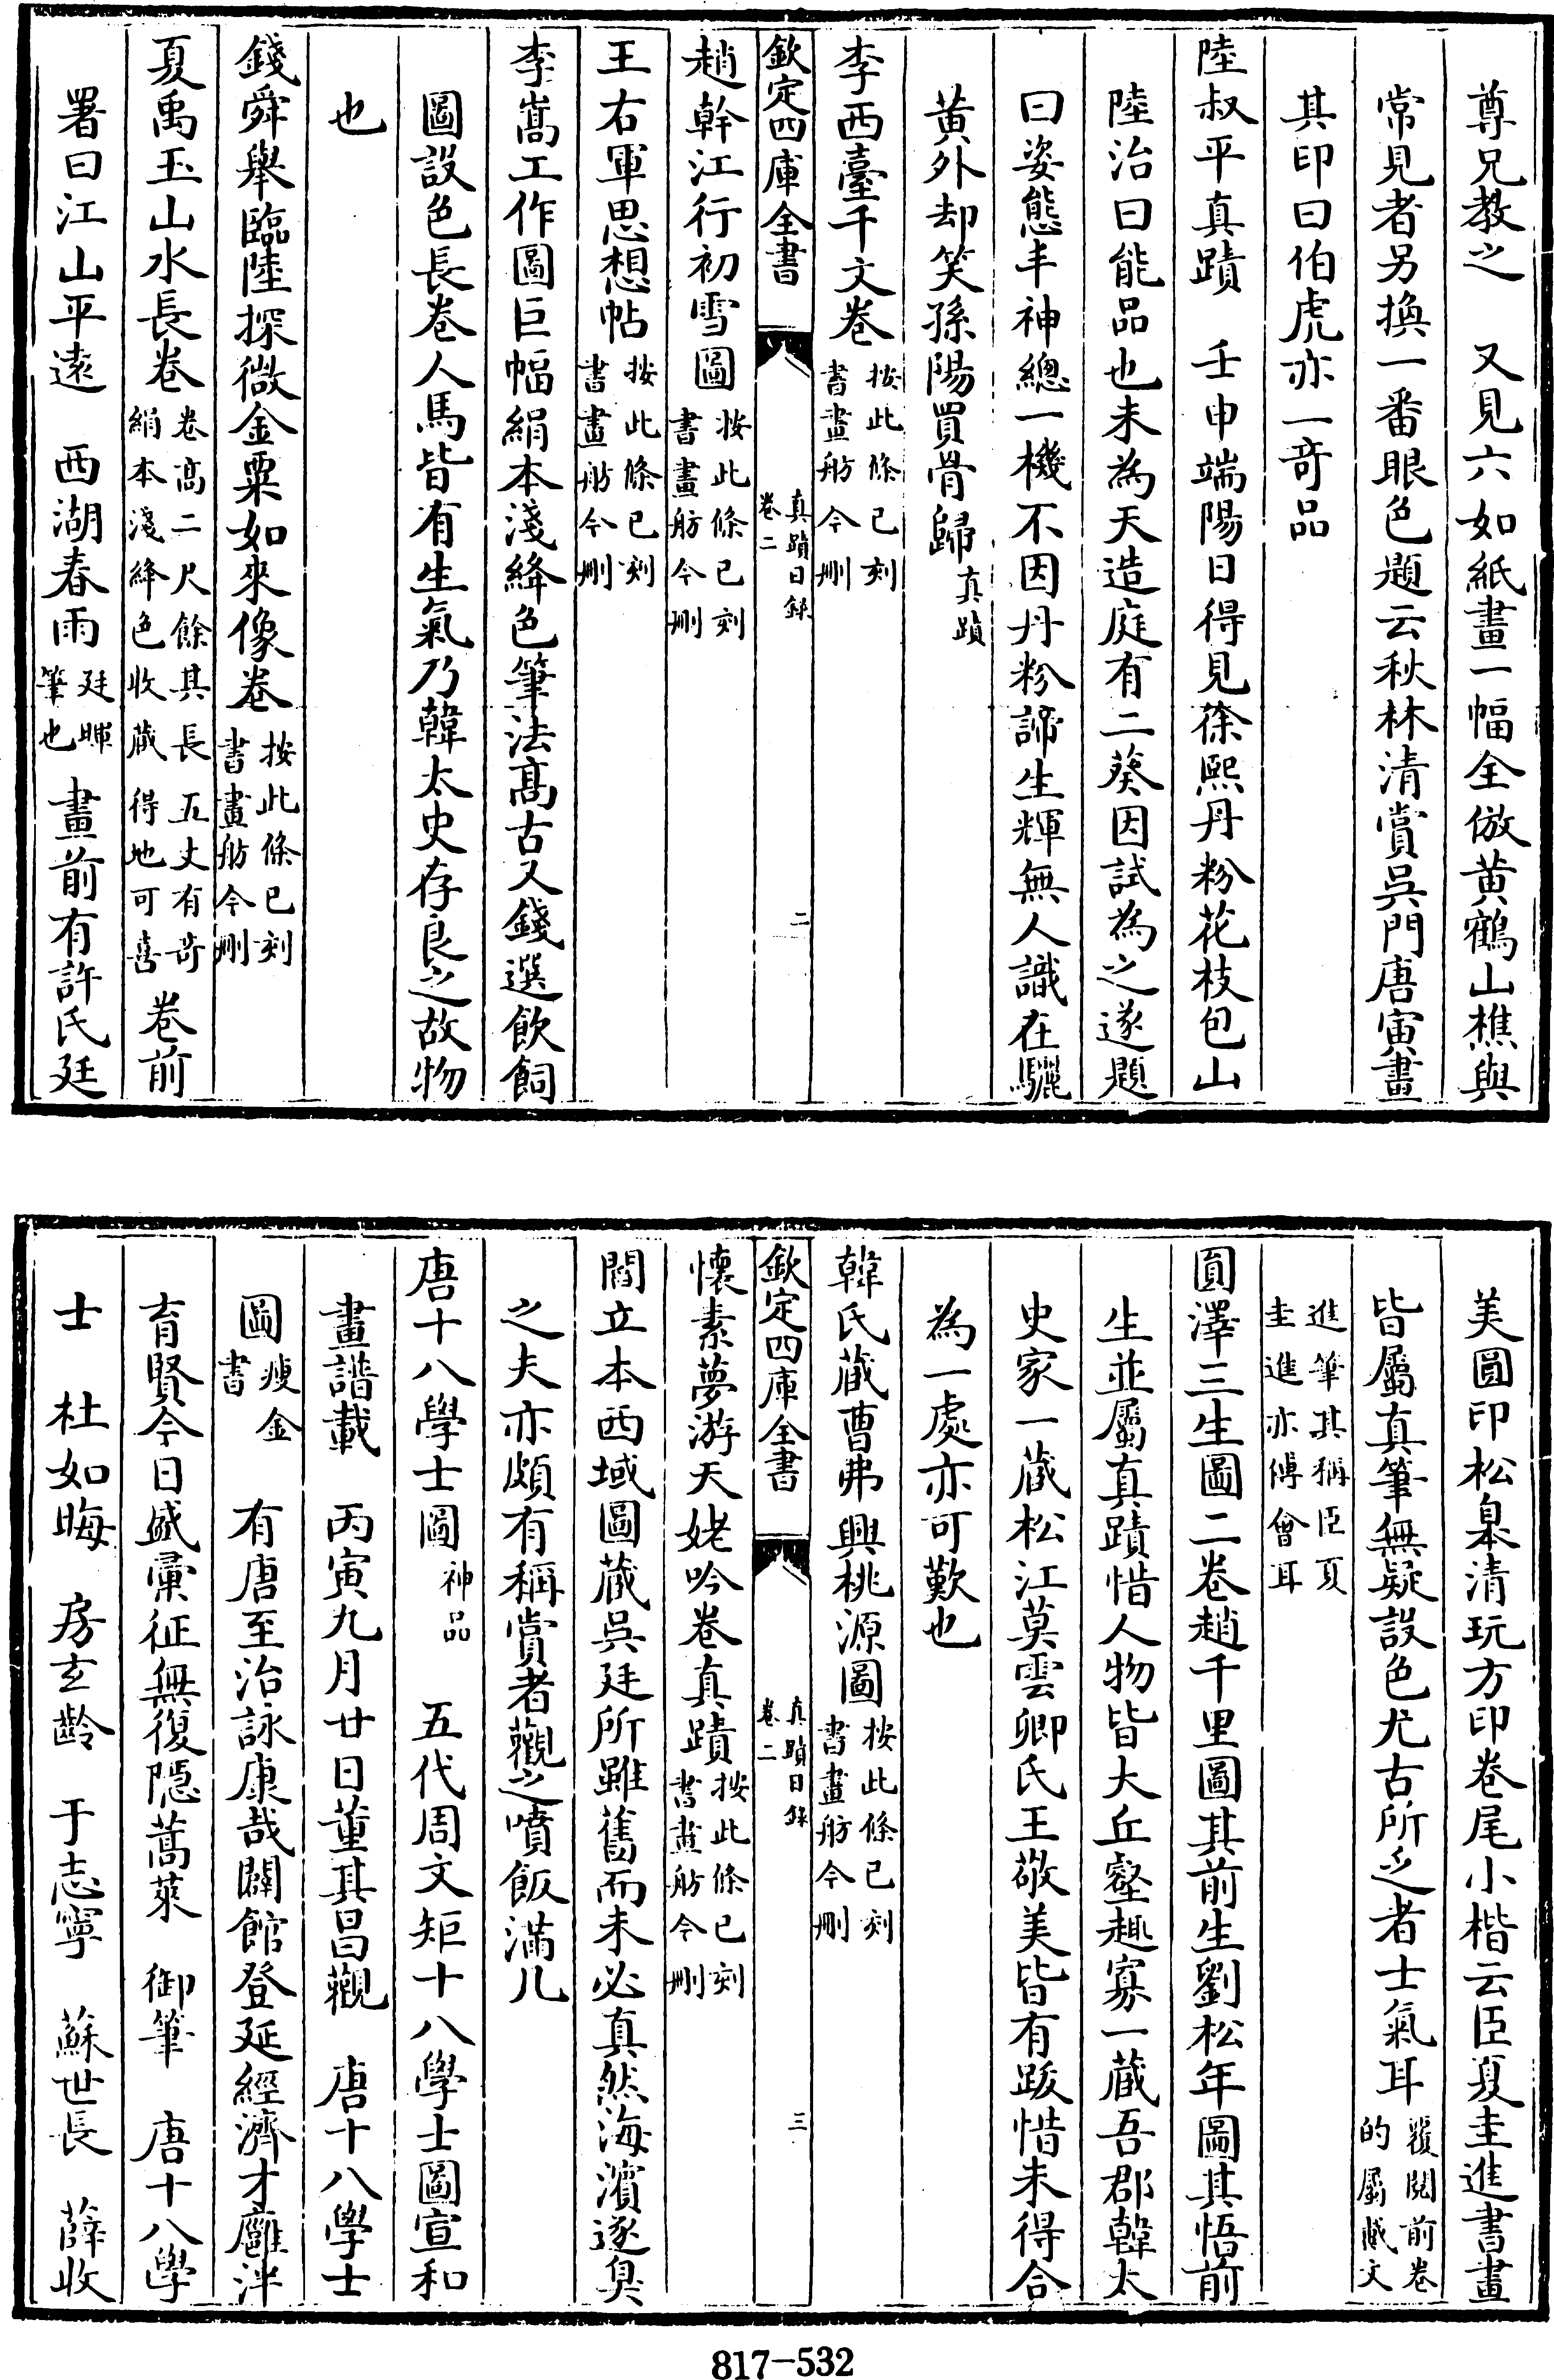 尊兄教之　又見六如紙畫一幅全倣黄鶴山樵與
常見者另換一番眼色題云秋林清賞吳門唐寅畫
其印曰伯虎亦一奇品
陸叔平真蹟　壬申端陽日得見徐熙丹粉花枝包山
陸治曰能品也未為天造庭有二葵因試為之遂題
曰姿態丰神總一機不因丹粉諦生輝無人識在驪
黄外却笑孫陽買骨歸真蹟
李西臺千文卷按此條已刻書畫舫今刪
欽定四庫全書　真蹟日録卷二　二
趙幹江行初雪圖按此條已刻書畫舫今刪
王右軍思想帖按此條已刻書畫舫今刪
李嵩工作圖巨幅絹本淺絳色筆法髙古又錢選飲飼
圖設色長卷人馬皆有生氣乃韓太史存良之故物
也
錢舜舉臨陸探微金粟如來像卷按此條已刻書畫舫今刪
夏禹玉山水長卷卷髙二尺餘其長五丈有奇絹本淺絳色收藏得地可喜卷前
署曰江山平遠　西湖春雨廷暉筆也畫前有許氏廷
美圓印松臯清玩方印卷尾小楷云臣夏圭進書畫
皆屬真筆無疑設色尤古所乏者士氣耳覆閱前卷的屬臧文
進筆其稱臣夏圭進亦傅會耳
圓澤三生圖二卷趙千里圖其前生劉松年圖其悟前
生並屬真蹟惜人物皆大丘壑趣寡一藏吾郡韓太
史家一藏松江莫雲卿氏王敬美皆有跋惜未得合
為一處亦可歎也
韓氏藏曹弗興桃源圖按此條已刻書畫舫今刪
欽定四庫全書　真蹟日録卷二　三
懷素夢游天姥吟卷真蹟按此條已刻書畫舫今刪
閻立本西域圖藏吳廷所雖舊而未必真然海濵逐臭
之夫亦頗有稱賞者觀之噴飯滿几
唐十八學士圖神品　五代周文矩十八學士圖宣和
畫譜載　丙寅九月廿日董其昌觀　唐十八學士
圖瘦金書　有唐至治詠康哉闢館登延經濟才廱泮
育賢今日盛彚征無復隠蒿萊　御筆　唐十八學
士　杜如晦　房玄齡　于志寧　蘇世長　薛收
817-532